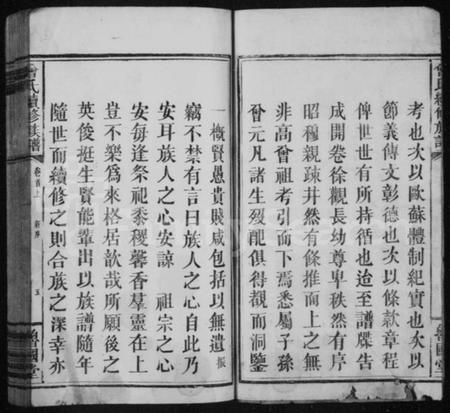 考也次以歐蘇體制紀實也次以
節義傳文彰德也次以條款章程
俾世世有所持循也迨至譜牒告
成開卷徐觀長幼尊卑秩然有序
昭穆親疎井然有條推而上之無
非高曾祖考引而下焉悉屬子孫
曾元凡諸生歿配俱得覩而洞鑒
一概賢愚貴賤咸包括以無遺振
竊不禁有言曰族人之心自此乃
安耳族人之心安諒 祖宗之心
安每逢祭祀黍稷馨香羣靈在上
豈不樂為來格居歆哉所願後之
英俊挺生賢能輩出以族譜隨年
隨世而續修之則合族之深幸亦
曾氏續修族譜
卷首上
新序
五
魯國堂
曾氏續修族譜
魯國堂